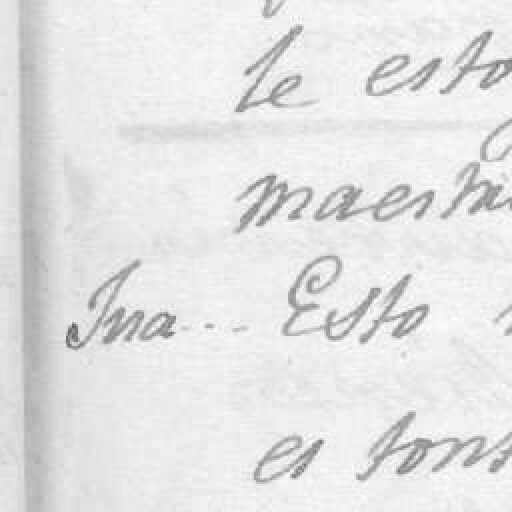 Le esto
maestri
Ina... Esto
es tont